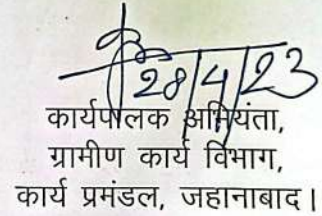 28/4/23
कार्यपालक अभियंता,
ग्रामीण कार्य विभाग,
कार्य प्रमंडल, जहानाबाद।